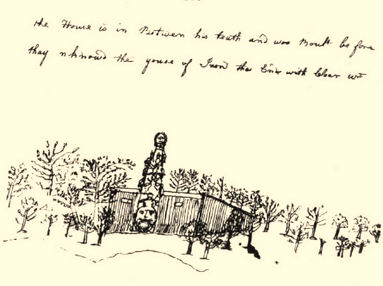 the House is in Betwen his teath and was Boult be fore
thay nknowd the youse of Iron the Einx with Clear